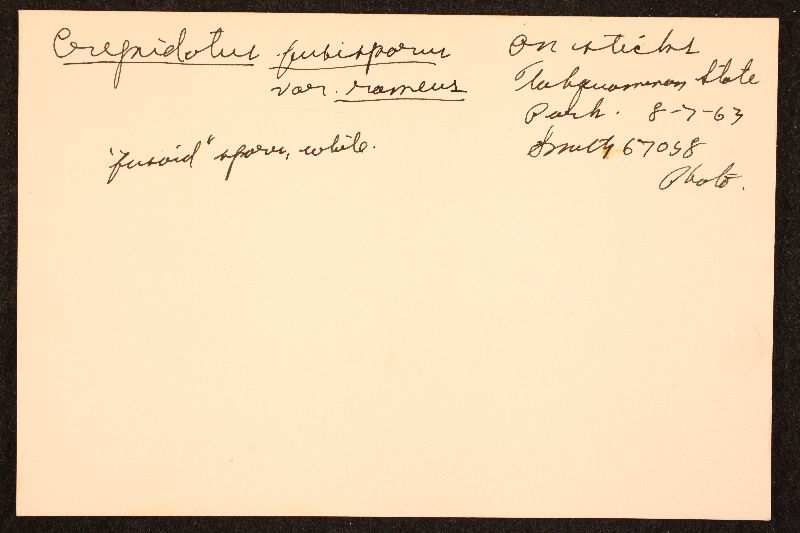 Crepidotus fusisporus
var. rameus
"fusoid" spores, white.
On sticks
Tahquamenon State
Park. 8-7-63
Smith 67058
Photo.